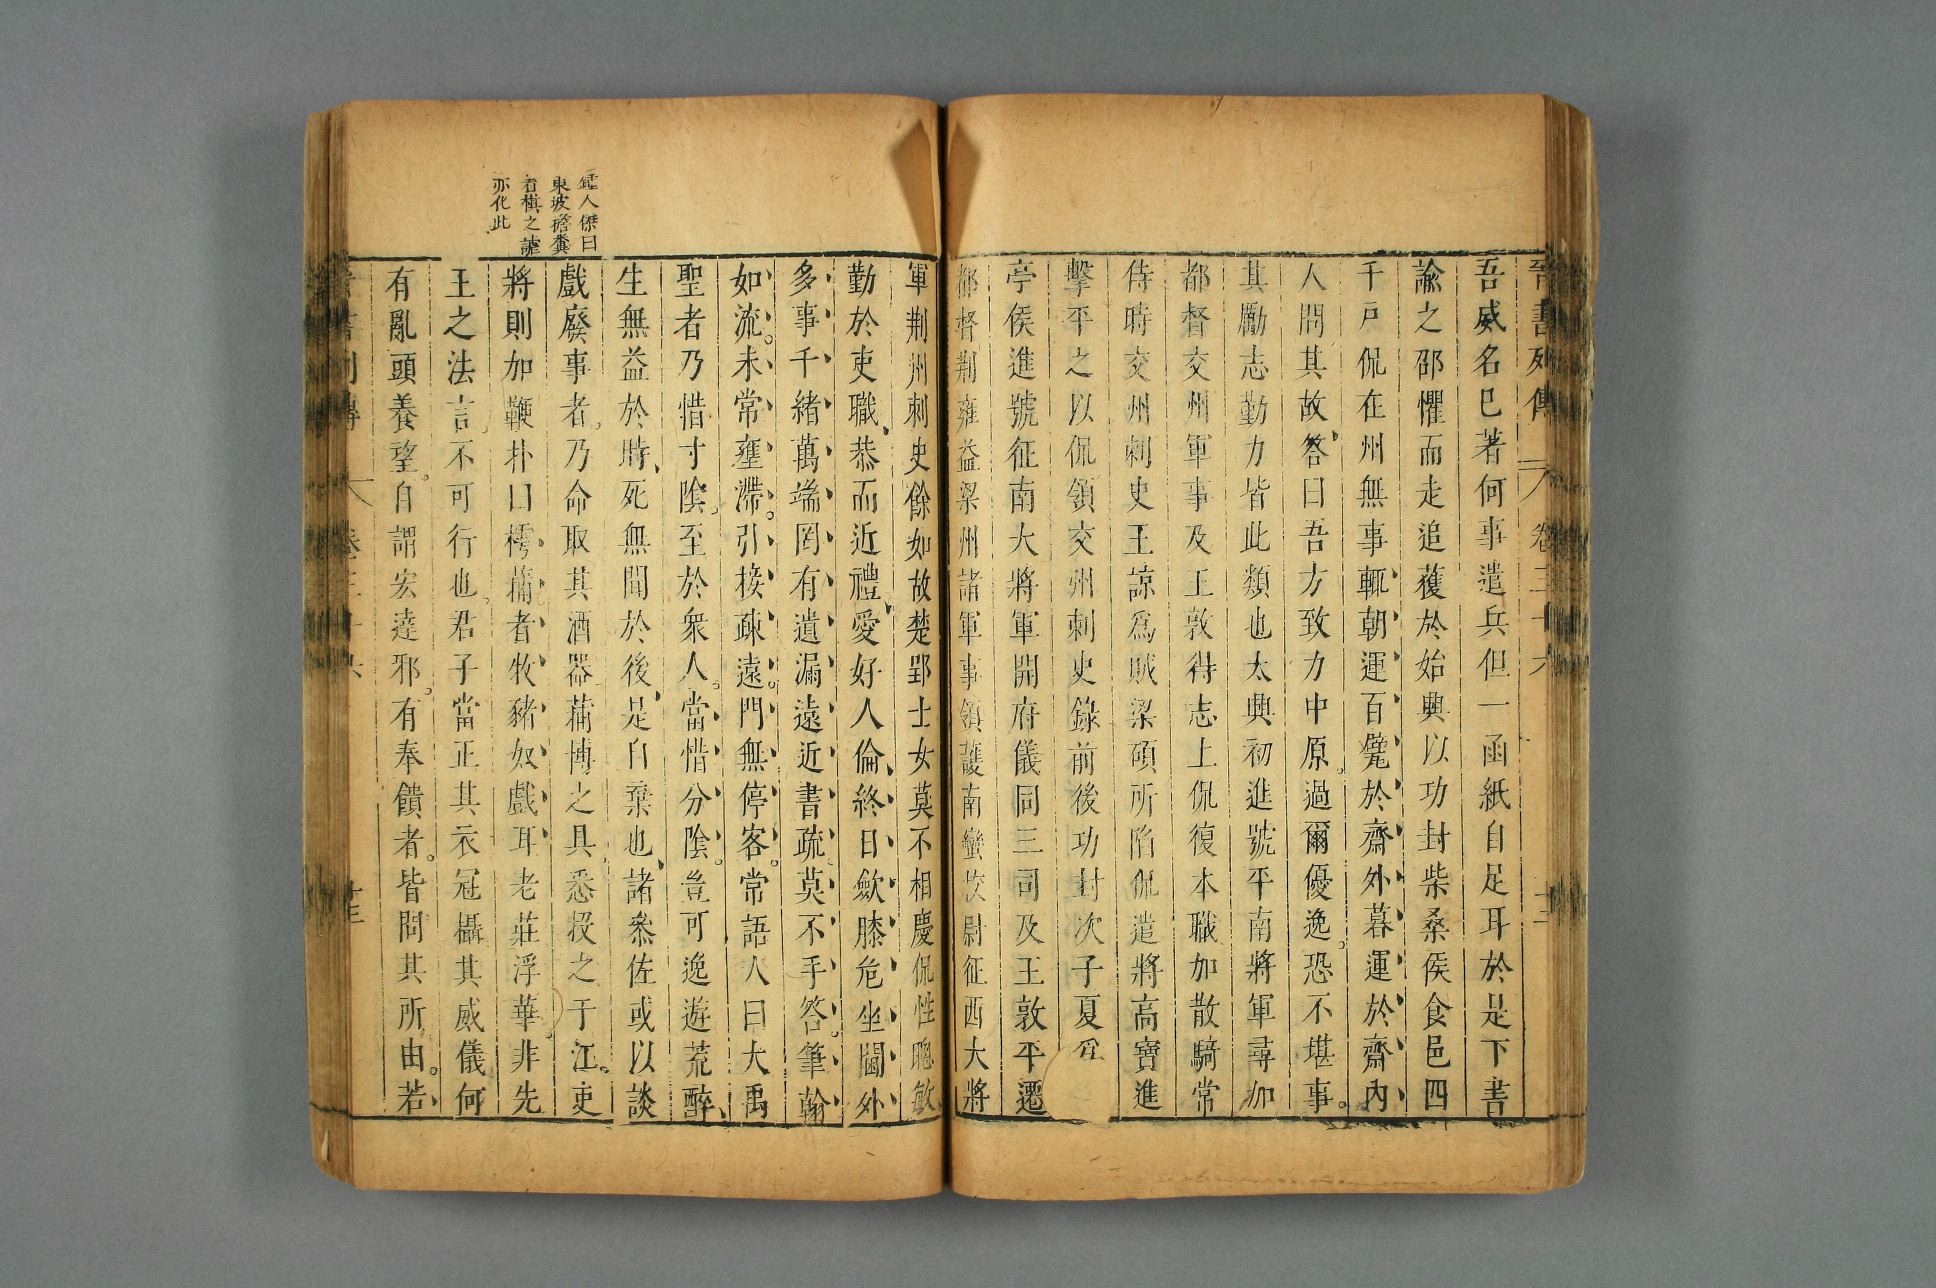 晉書列傳 卷三十六 十三
吾威名已著何事遣兵但一函紙自足耳於是下書
諭之邵懼而走追獲於始興以功封柴桑侯食邑四
千戸侃在州無事輒朝運百甓於齋外暮運於齋內
人問其故答曰吾方致力中原過爾優逸恐不堪事
其勵志勤力皆此類也太興初進號平南將軍尋加
都督交州軍事及王敦得志上侃復本職加散騎常
侍時交州刺史王諒爲賊梁碩所陷侃遣將高寶進
擊平之以侃領交州刺史錄前後功封次子夏爲
亭侯進號征南大將軍開府儀同三司及王敦平遷
都督荆雍益梁州諸軍事領護南蠻校尉征西大將
軍荆州刺史餘如故楚郢士女莫不相慶侃性聰敏
勤於吏職恭而近禮愛好人倫終日歛膝危坐閫外
多事千緒萬端罔有遺漏遠近書疏莫不手答筆翰
如流未常壅滯引接疎遠門無停客常語人曰大禹
聖者乃惜寸陰至於衆人當惜分陰豈可逸遊荒醉
生無益於時死無聞於後是自棄也諸叅佐或以談
戲廢事者乃命取其酒器蒱博之具悉投之于江吏
將則加鞭朴曰樗蒱者牧豬奴戲耳老莊浮華非先
王之法言不可行也君子當正其衣冠攝其威儀何
有亂頭養望自謂宏達邪有奉饋者皆問其所由若
人傑曰
東坡擔糞
着棋之謔
亦化此